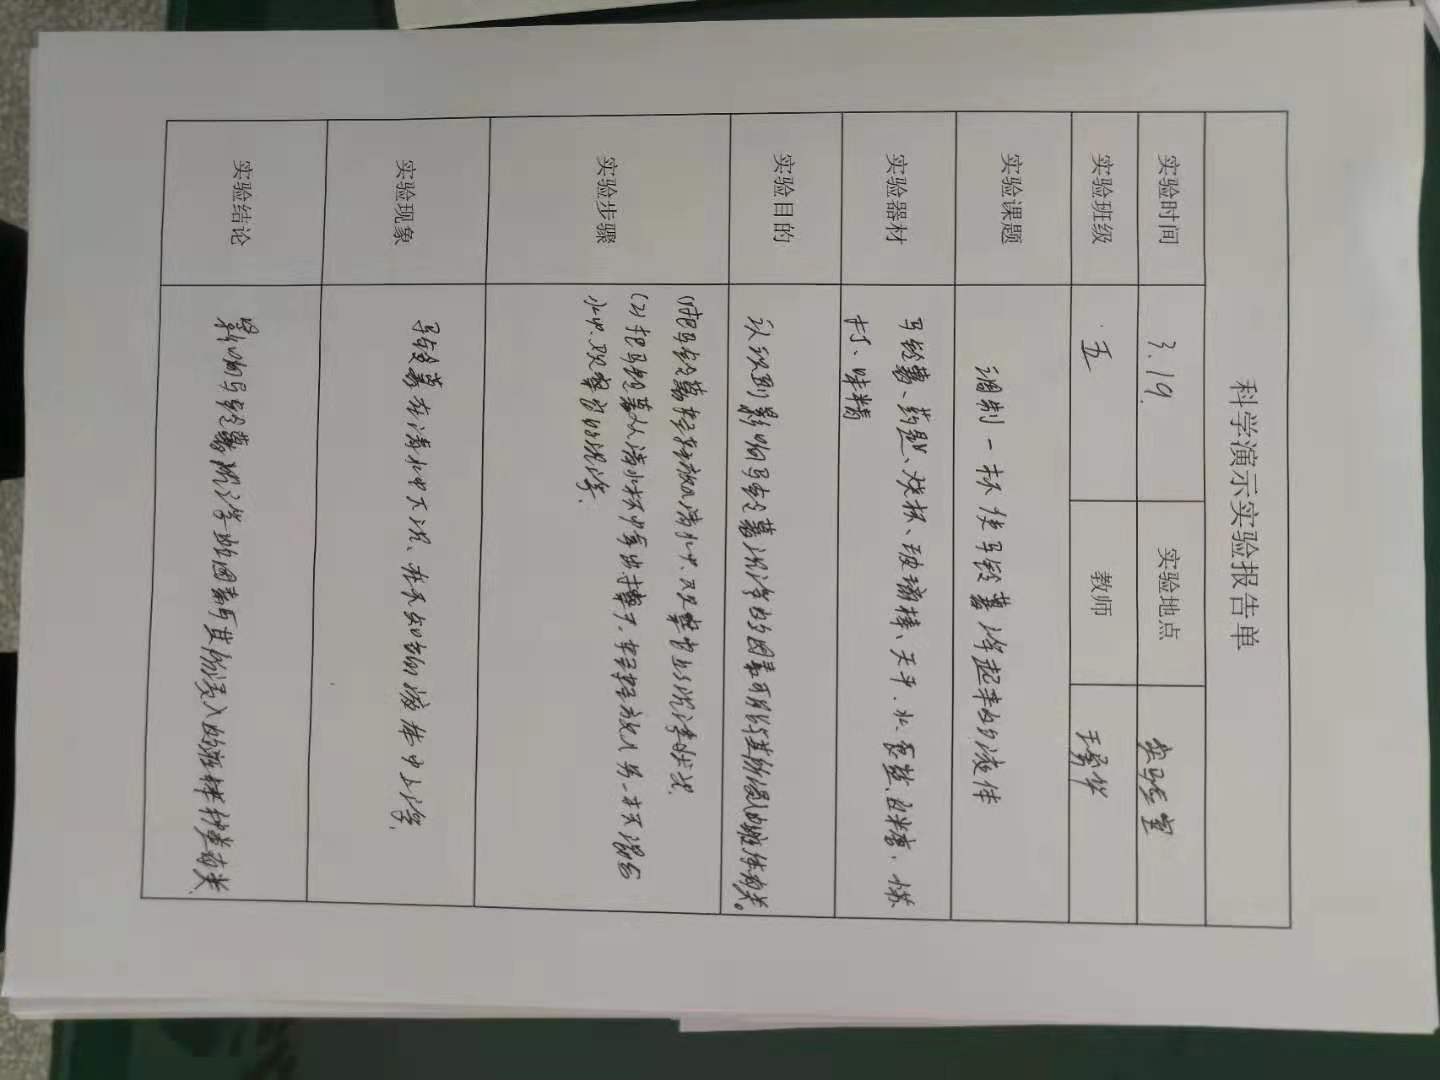 科学演示实验报告单
实验时间 3.19. 实验地点 实验室
实验班级 五 教师
实验课题 调制一杯使马铃薯浮起来的液体
实验器材 马铃薯、药匙、烧杯、玻璃棒、天平、水、食盐、白糖、小苏
打、味精
实验目的 认识到影响马铃薯沉浮的因素可能与其物混的液体有关。
实验步骤 (1)把马铃薯轻轻放入清水中,观察
(2)把马铃薯从清水杯中拿出擦干,轻轻放入另一未知
水中,观察它的沉浮.
实验现象 马铃薯在清水中下沉、在未知的液体中上浮.
实验结论 影响马铃薯沉浮的因素与其所浸入的液体种类有关